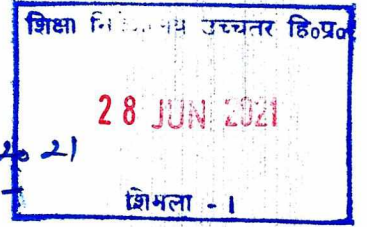 शिक्षा उच्चतर हि०प्र०
28 JUN 2021
21
शिमला - 1